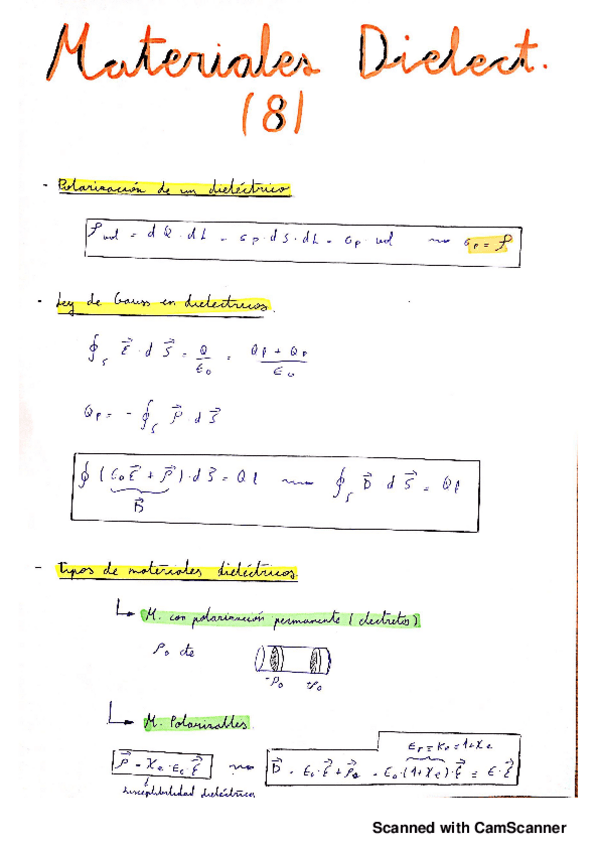 Materiales Dielect.
(8)
- Polarización de un dieléctrico
P vol = dQ · dL = σp · dS · dL = σp · vol ⇝ σp = P
- Ley de Gauss en dieléctricos.
∮s E⃗ · d S⃗ = Q/ε₀ = (Ql + Qp)/ε₀
Qp = - ∮s P⃗ · d S⃗
∮ (ε₀E⃗ + P⃗) · d S⃗ = Ql ⇝ ∮s D⃗ d S⃗ = Ql
D⃗
- Tipos de materiales dieléctricos.
M. con polarización permanente (electretos)
P₀ cte
-P₀ +P₀
M. Polarizables.
εr = Kr = 1+χe
P⃗ = χe · ε₀ E⃗ ⇝ D⃗ = ε₀ · E⃗ + P⃗ = ε₀ · (1+χe) · E⃗ = ε · E⃗
susceptibilidad dieléctrica
Scanned with CamScanner